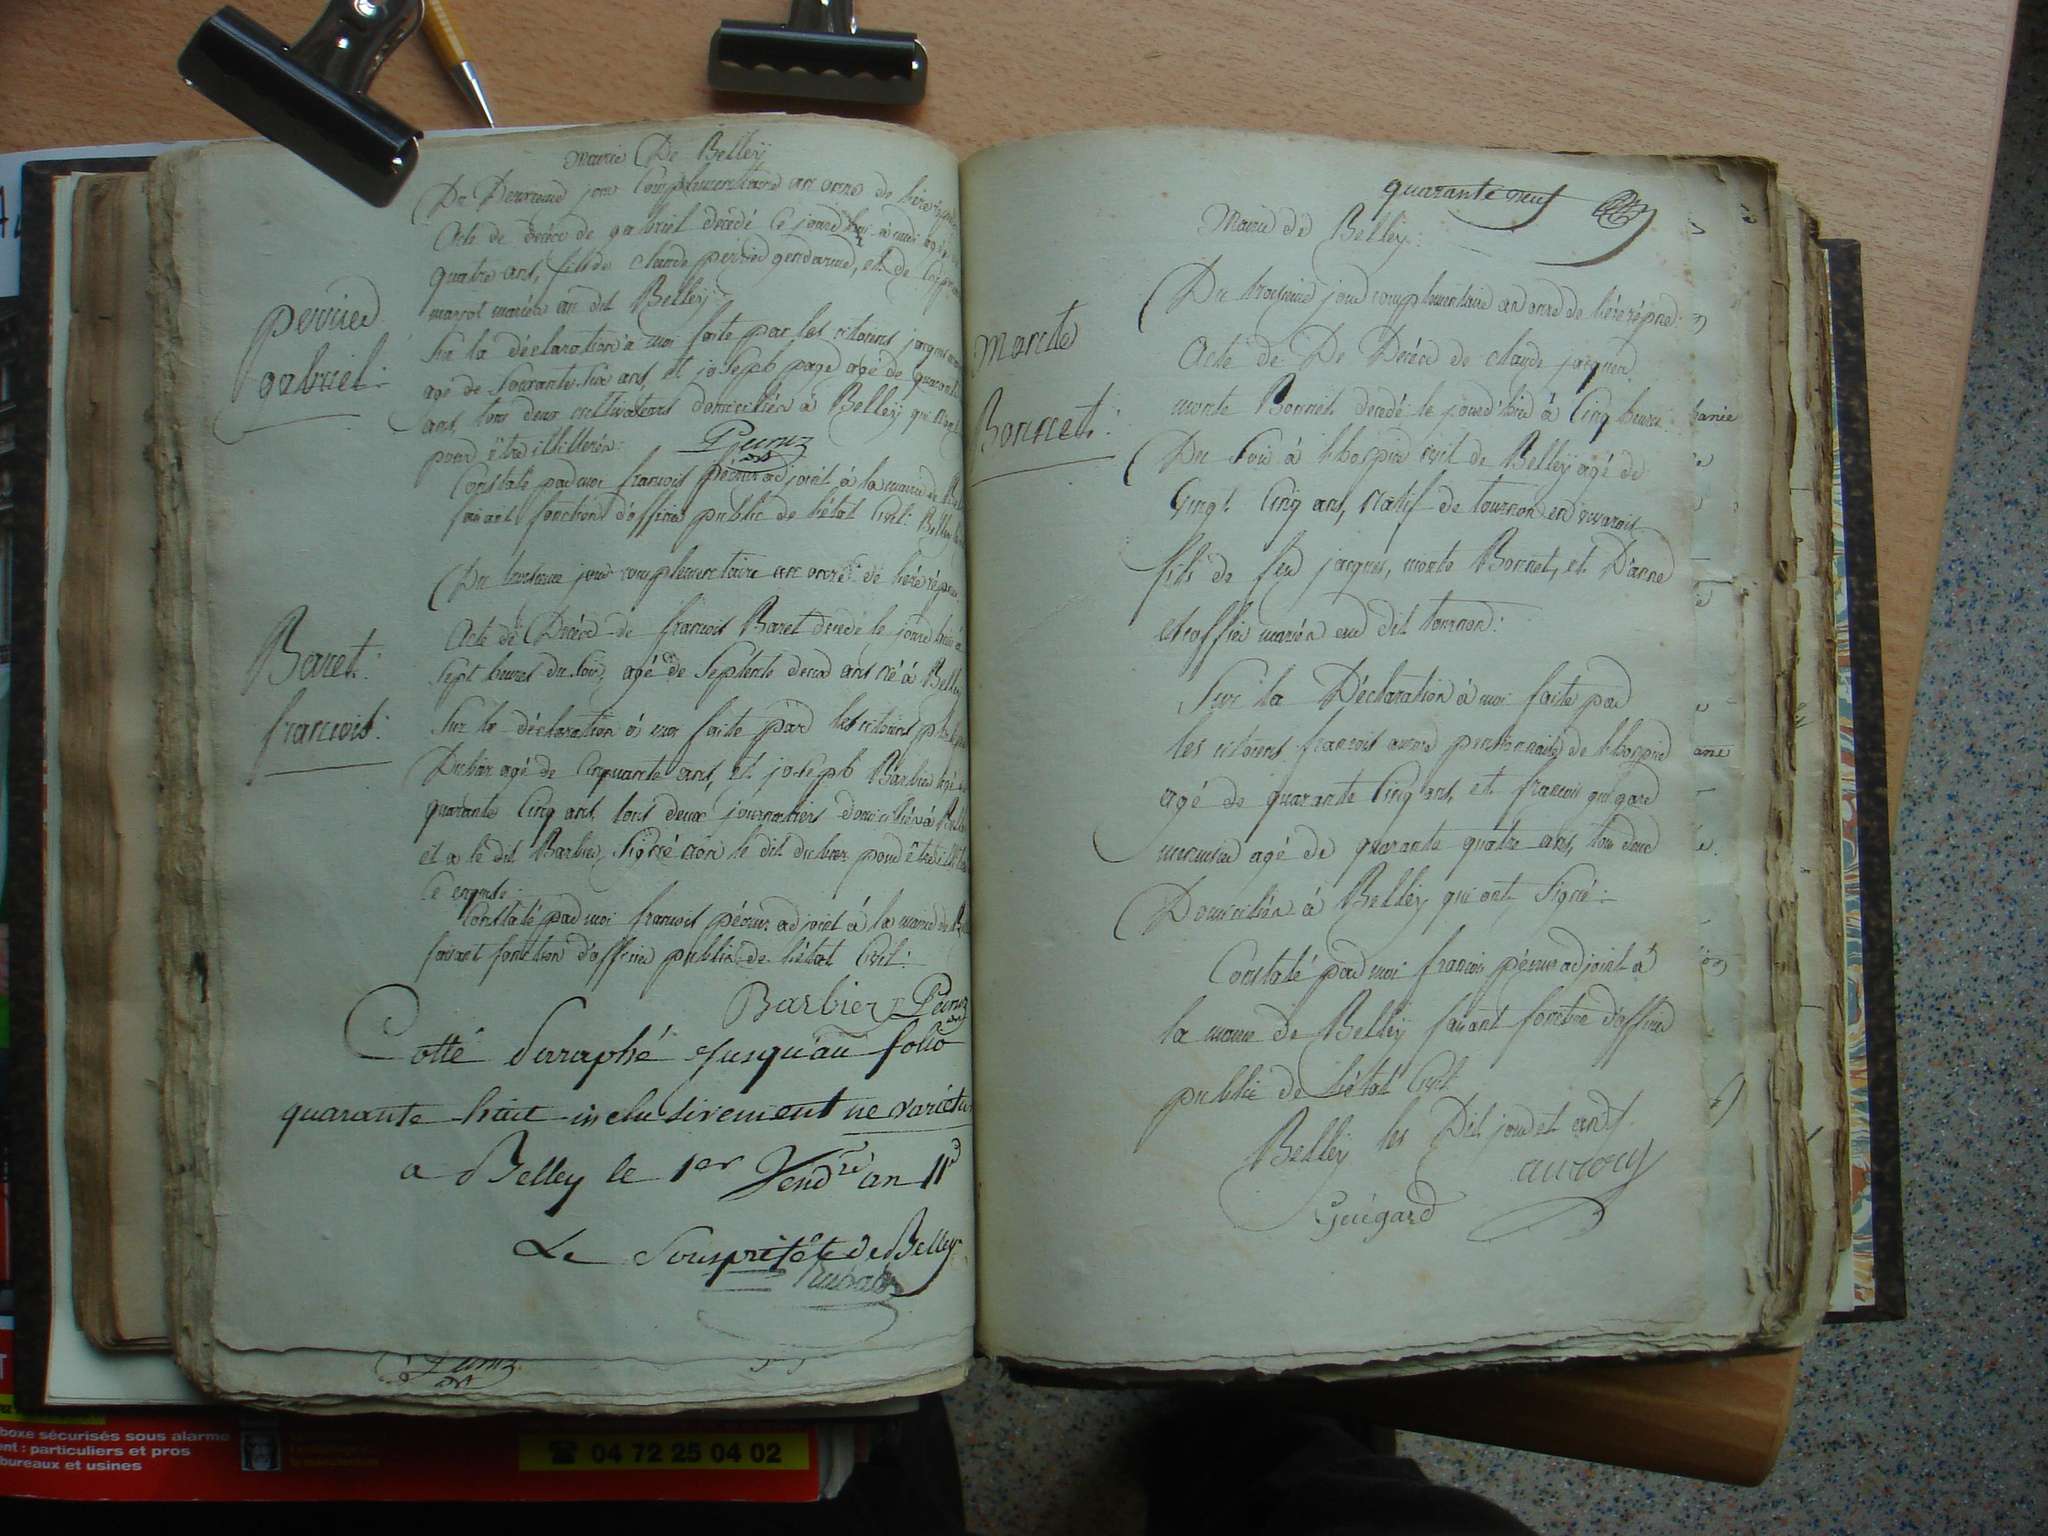 Mairie De Belleÿ
Du Deuxieme jour Complementaire an onze de
Acte de Décéce de gabriel décédé le jourd'hui à midi agé de
quatre ans, fils de claude perrier gendarme, et de
mariés au dit Belleÿ
Sur la déclaration à moi faite par les citoiens jacques
agé de Soixante Six ans, et joseph page agé de quarante
ans, tous deux cultivateurs domiciliés à Belleÿ qui n'ont
pour être illitérés:
Constaté par moi francois pécux adjoint à la mairie de
faisant fonction d'officier public de l'état Civil: Belleÿ
perrier
gabriel:
Du troisieme jour complementaire an onze de
Acte de Décéce de francois Baret decedé le jourd'hui à
Sept heures du Soir, agé de Septente deux ans né à Belleÿ
Sur la déclaration à moi faite par les citoiens
agé de Cinquante ans, et joseph Barbier agé de
quarante Cinq ans, tous deux journaliers domiciliés à
et a le dit Barbier, Signé non le dit pour être
de enquis:
Constaté par moi francois pécux adjoint à la mairie de
faisant fonction d'officier public de l'état Civil:
Baret:
francois:
Barbier
Cotté Paraphé jusqu'au folio
quarante huit inclusivement ne varietur
a Belley le 1er Vendre an 11
Le Sousprefet de Belley
quarante neuf
Mairie de Belleÿ:
Du troisieme jour complementaire an onze de
Acte de De Décéce de claude jacques
monte Bonnet decedé le jourd'hier à Cinq heures
Du Soir à l'hospice civil de Belleÿ agé de
Vingt Cinq ans, natif de tournon en vivarois
fils de feu jacques, monte Bonnet, et D'anne
mariés au dit tournon:
Sur la Déclaration à moi faite par
les citoiens francois pensionnaire de l'hospice
agé de quarante Cinq ans, et francois guigard
agé de quarante quatre ans, tous deux
Domiciliés à Belleÿ qui ont Signé:
Constaté par moi francois pécux adjoint à
la mairie de Belleÿ faisant fonction d'officier
public de l'état Civil
Belleÿ les Dit jour et an
Monte
Bonnet:
Guigard
boxe sécurisés sous alarme
ent : particuliers et pros
bureaux et usines
☎ 04 72 25 04 02